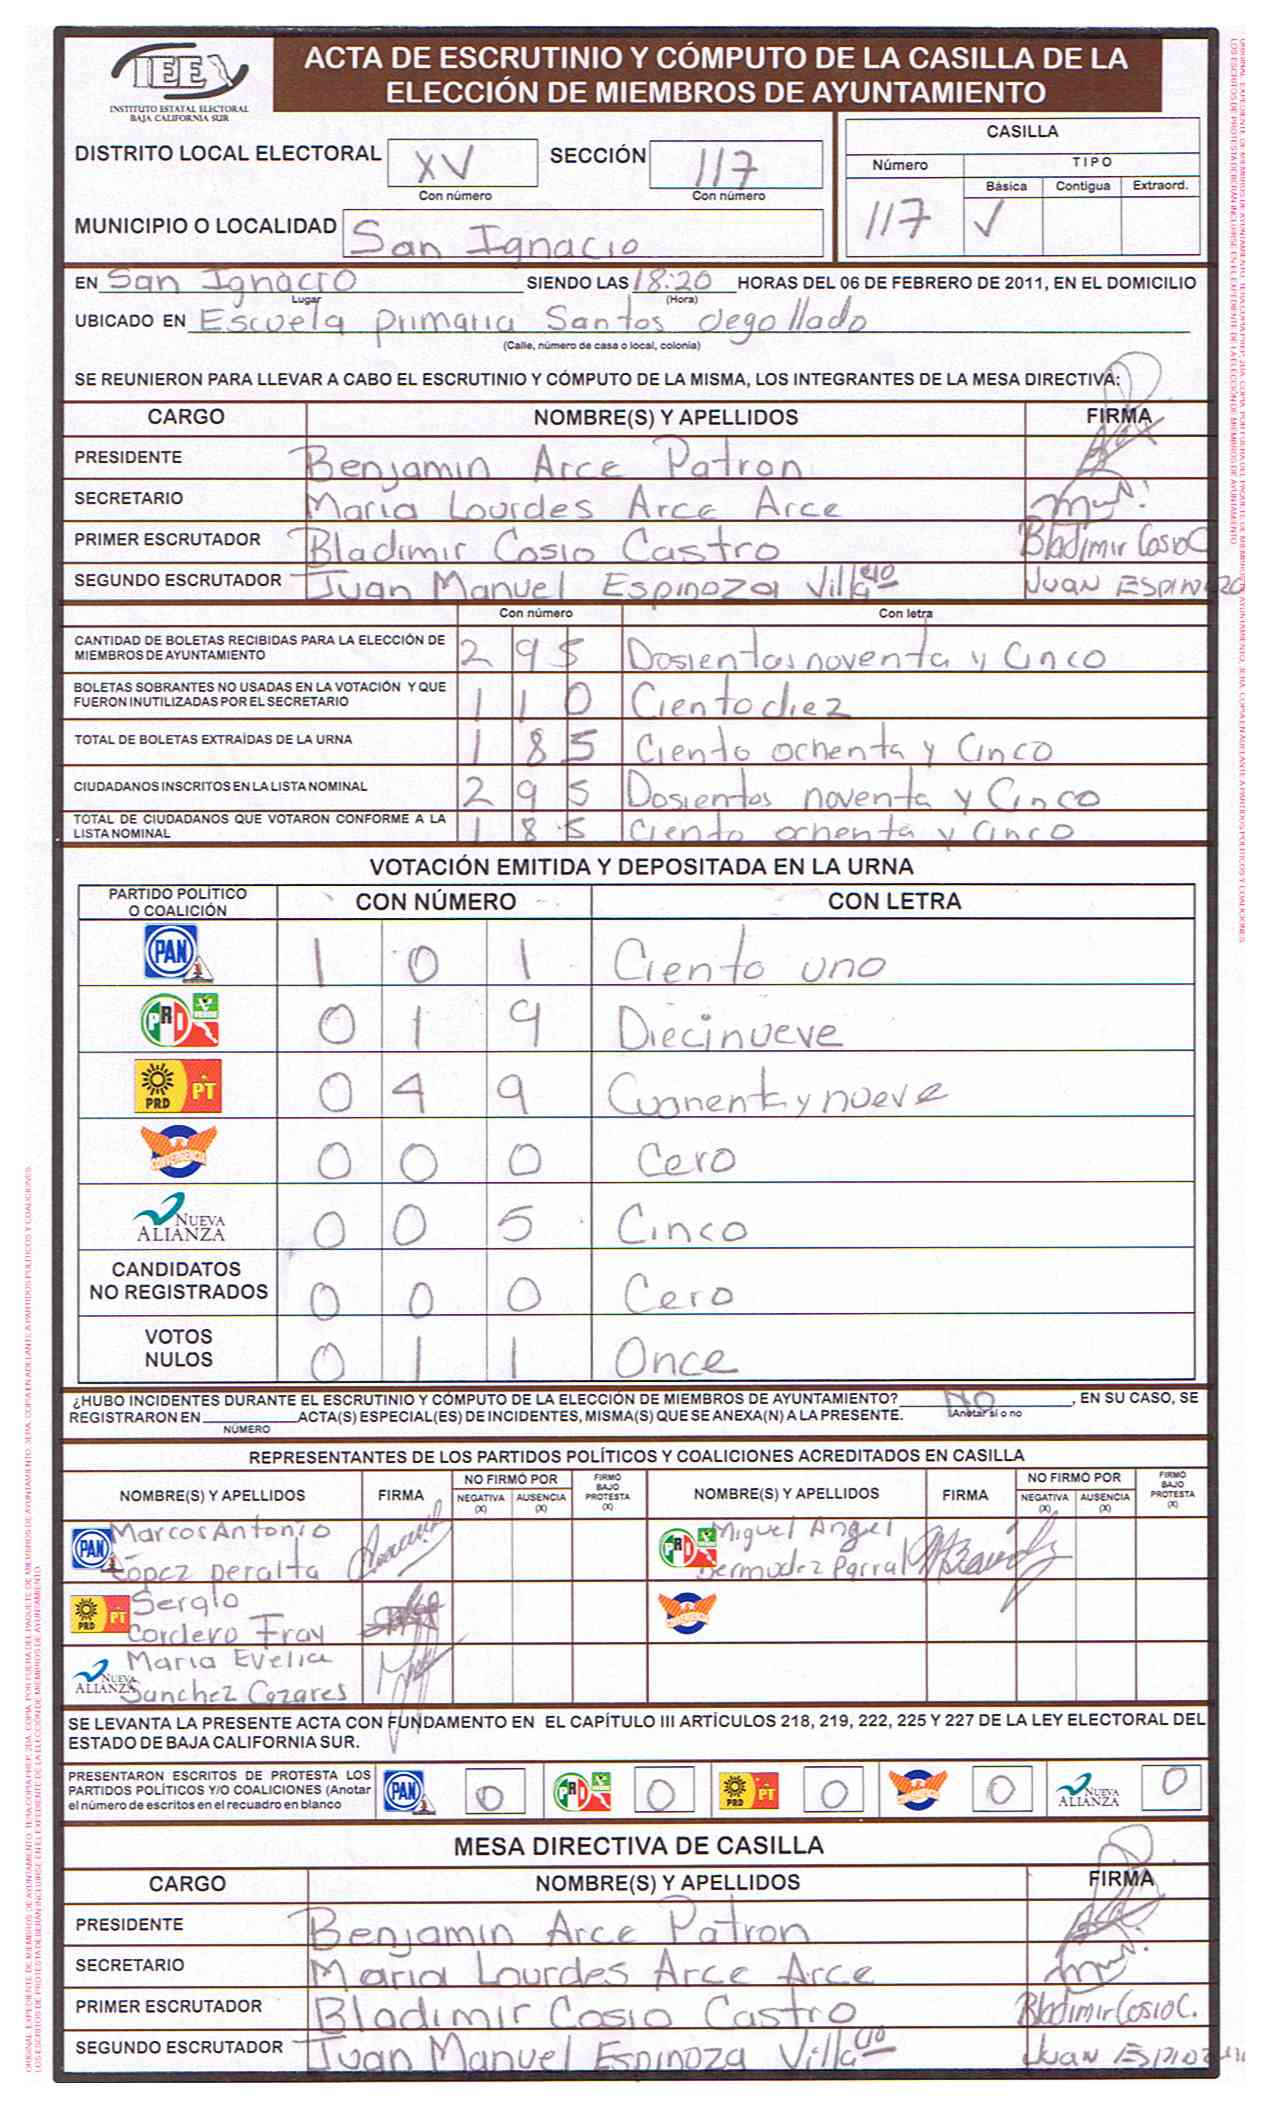 IEE
INSTITUTO ESTATAL ELECTORAL
BAJA CALIFORNIA SUR
ACTA DE ESCRUTINIO Y CÓMPUTO DE LA CASILLA DE LA
ELECCIÓN DE MIEMBROS DE AYUNTAMIENTO
DISTRITO LOCAL ELECTORAL XV SECCIÓN 117
Con número Con número
MUNICIPIO O LOCALIDAD San Ignacio
CASILLA
Número TIPO
Básica Contigua Extraord.
117 ✓
EN San Ignacio SIENDO LAS 18:20 HORAS DEL 06 DE FEBRERO DE 2011, EN EL DOMICILIO
Lugar (Hora)
UBICADO EN Escuela primaria Santos degollado
(Calle, número de casa o local, colonia)
SE REUNIERON PARA LLEVAR A CABO EL ESCRUTINIO Y CÓMPUTO DE LA MISMA, LOS INTEGRANTES DE LA MESA DIRECTIVA:
CARGO NOMBRE(S) Y APELLIDOS FIRMA
PRESIDENTE Benjamin Arce Patron
SECRETARIO Maria Lourdes Arce Arce
PRIMER ESCRUTADOR Bladimir Cosio Castro Bladimir Cosio C
SEGUNDO ESCRUTADOR Juan Manuel Espinoza Villa Juan Espinoza
Con número Con letra
CANTIDAD DE BOLETAS RECIBIDAS PARA LA ELECCIÓN DE
MIEMBROS DE AYUNTAMIENTO 295 Dosientas noventa y Cinco
BOLETAS SOBRANTES NO USADAS EN LA VOTACIÓN Y QUE
FUERON INUTILIZADAS POR EL SECRETARIO 110 Ciento diez
TOTAL DE BOLETAS EXTRAÍDAS DE LA URNA 185 Ciento ochenta y Cinco
CIUDADANOS INSCRITOS EN LA LISTA NOMINAL 295 Dosientos noventa y Cinco
TOTAL DE CIUDADANOS QUE VOTARON CONFORME A LA
LISTA NOMINAL 185 Ciento ochenta y Cinco
VOTACIÓN EMITIDA Y DEPOSITADA EN LA URNA
PARTIDO POLÍTICO
O COALICIÓN CON NÚMERO CON LETRA
PAN 1 0 1 Ciento uno
PRI VERDE 0 1 9 Diecinueve
PRD PT 0 4 9 Cuarenta y nueve
CONVERGENCIA 0 0 0 Cero
NUEVA ALIANZA 0 0 5 Cinco
CANDIDATOS
NO REGISTRADOS 0 0 0 Cero
VOTOS
NULOS 0 1 1 Once
¿HUBO INCIDENTES DURANTE EL ESCRUTINIO Y CÓMPUTO DE LA ELECCIÓN DE MIEMBROS DE AYUNTAMIENTO? No, EN SU CASO, SE
REGISTRARON EN ACTA(S) ESPECIAL(ES) DE INCIDENTES, MISMA(S) QUE SE ANEXA(N) A LA PRESENTE. (Anotar sí o no
NÚMERO
REPRESENTANTES DE LOS PARTIDOS POLÍTICOS Y COALICIONES ACREDITADOS EN CASILLA
NOMBRE(S) Y APELLIDOS FIRMA NO FIRMÓ POR NEGATIVA (X) AUSENCIA (X) FIRMÓ BAJO PROTESTA (X) NOMBRE(S) Y APELLIDOS FIRMA NO FIRMÓ POR NEGATIVA (X) AUSENCIA (X) FIRMÓ BAJO PROTESTA (X)
PAN Marcos Antonio PRI Miguel Angel
López peralta Bermudez Parral
PRD PT Sergio CONVERGENCIA
Cordero Fray
Maria Evelia
NUEVA ALIANZA Sanchez Cazares
SE LEVANTA LA PRESENTE ACTA CON FUNDAMENTO EN EL CAPÍTULO III ARTÍCULOS 218, 219, 222, 225 Y 227 DE LA LEY ELECTORAL DEL
ESTADO DE BAJA CALIFORNIA SUR.
PRESENTARON ESCRITOS DE PROTESTA LOS
PARTIDOS POLÍTICOS Y/O COALICIONES (Anotar
el número de escritos en el recuadro en blanco
PAN 0 PRI 0 PRD PT 0 CONVERGENCIA 0 NUEVA ALIANZA 0
MESA DIRECTIVA DE CASILLA
CARGO NOMBRE(S) Y APELLIDOS FIRMA
PRESIDENTE Benjamin Arce Patron
SECRETARIO Maria Lourdes Arce Arce
PRIMER ESCRUTADOR Bladimir Cosio Castro Bladimir Cosio C.
SEGUNDO ESCRUTADOR Juan Manuel Espinoza Villa Juan Espinoza